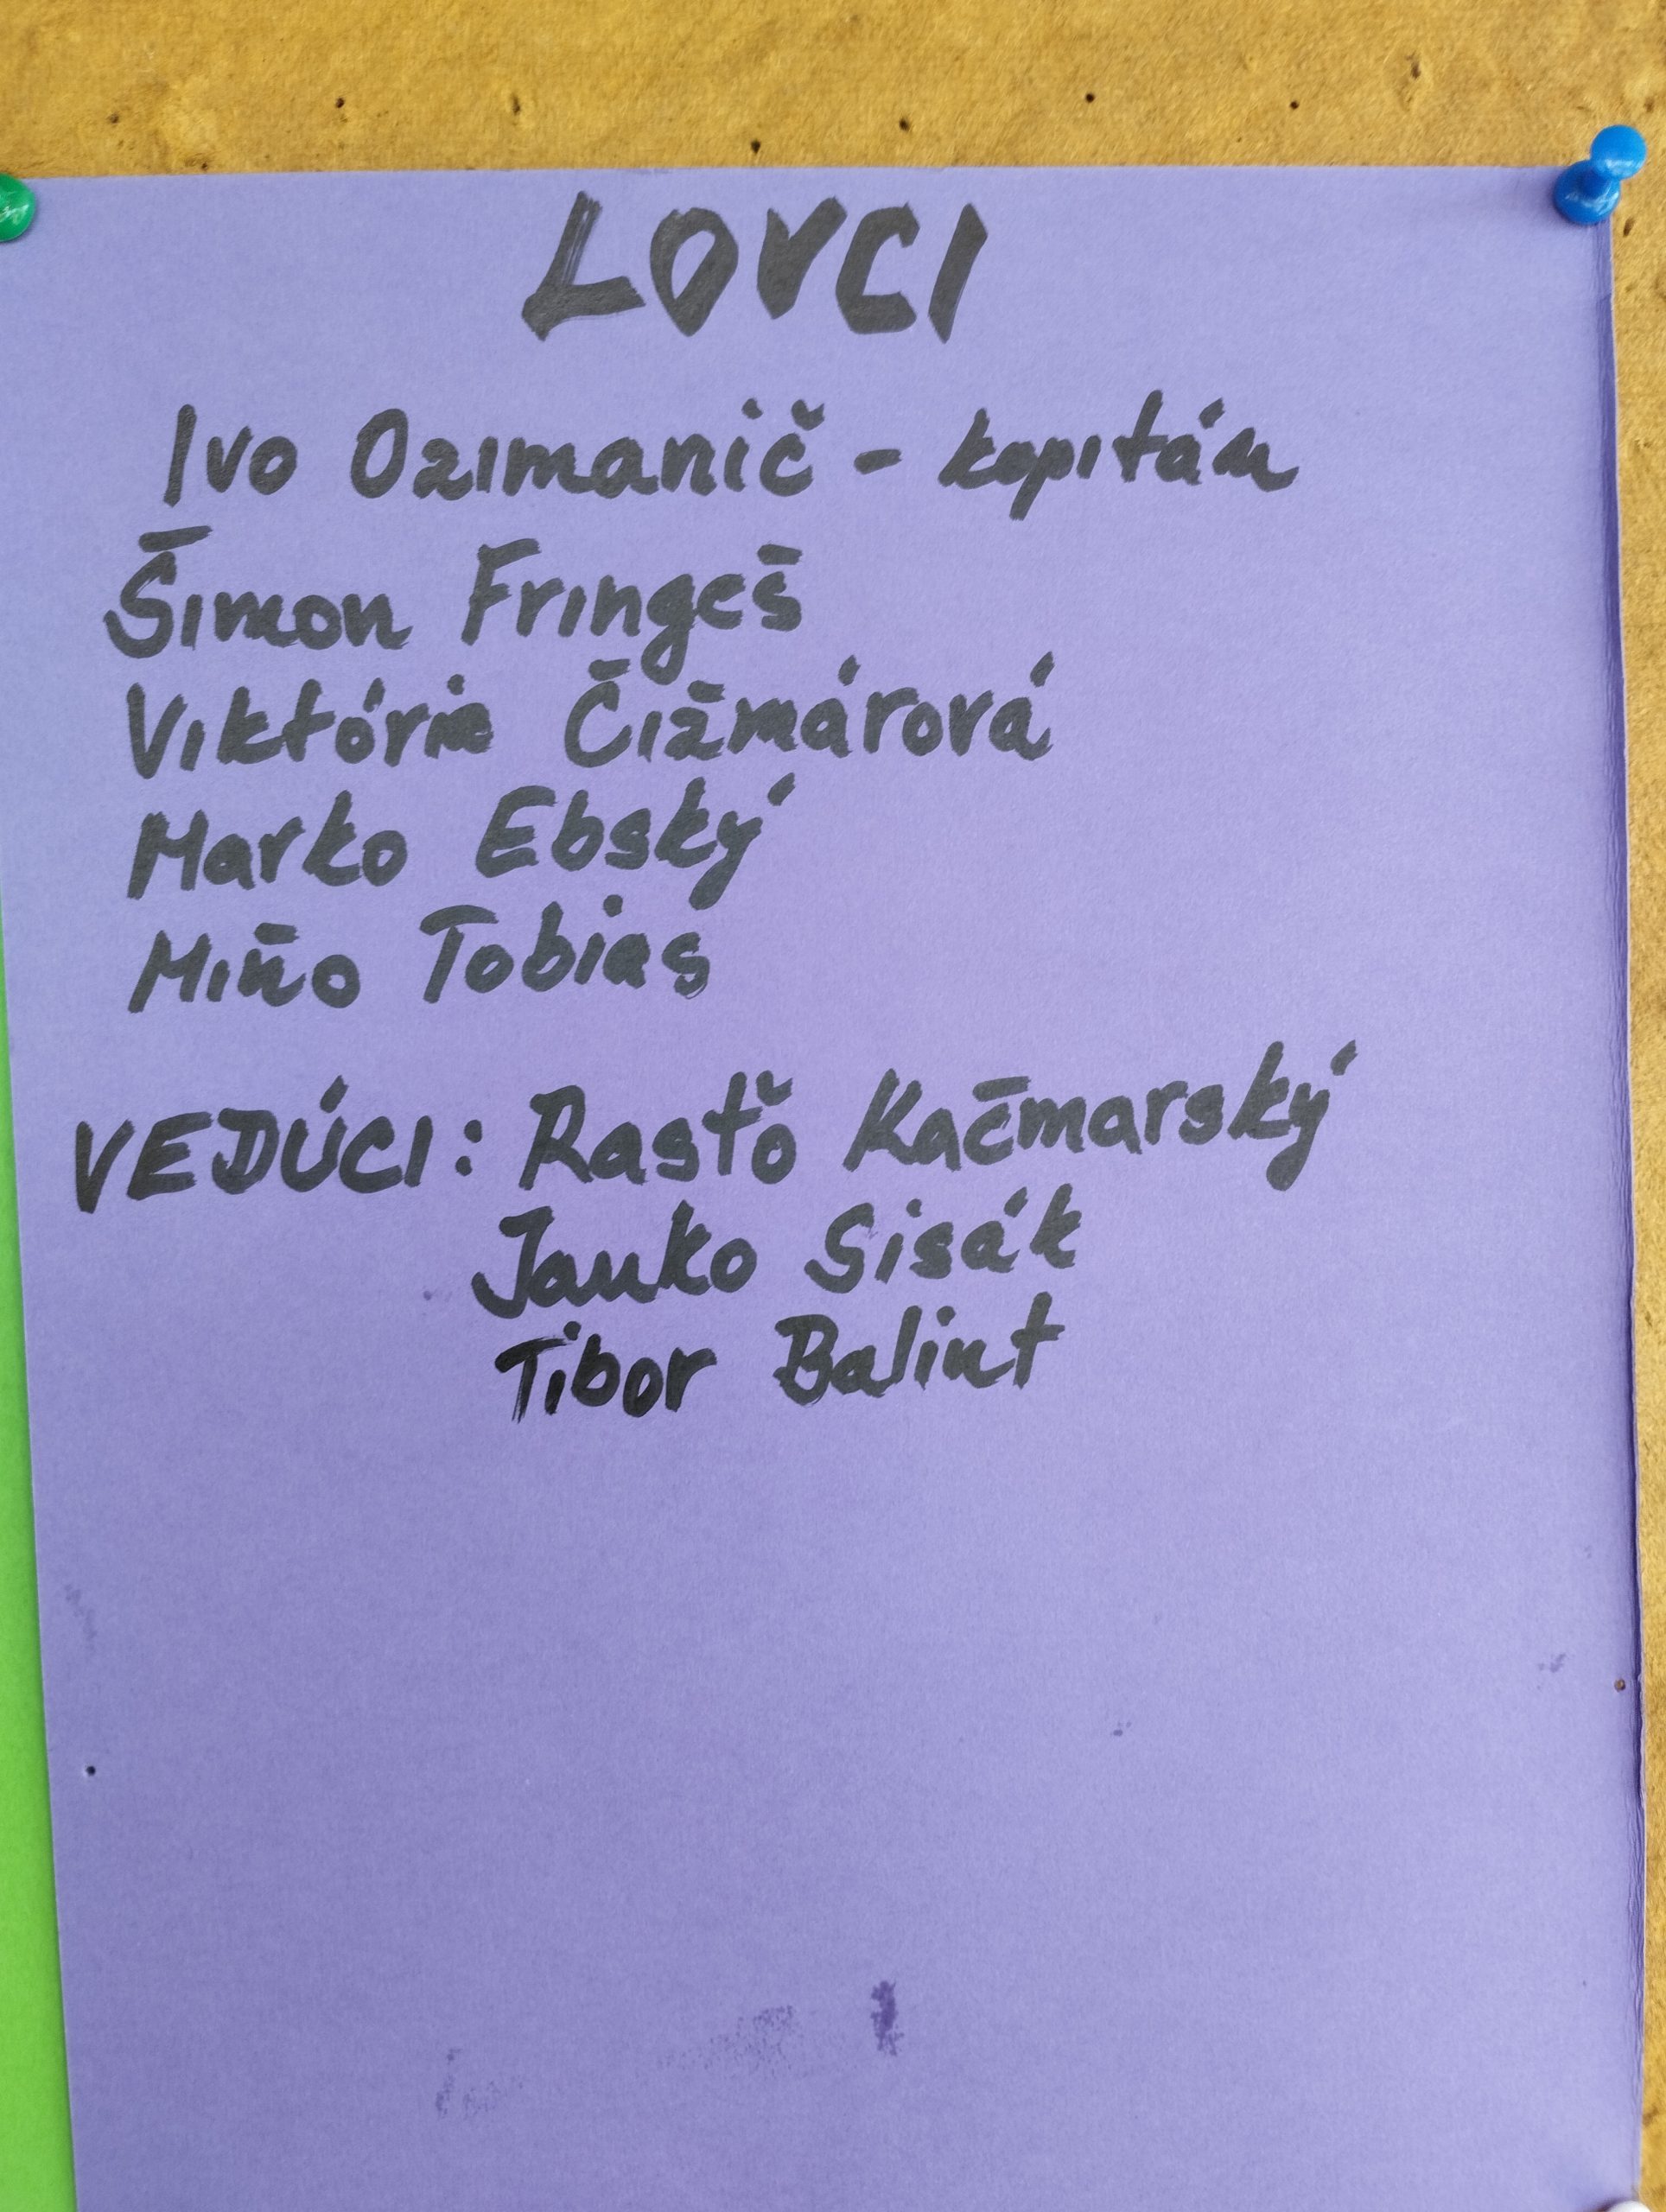 LOVCI
Ivo Ozimanič - kapitán
Šimon Fringeš
Viktória Čižmárová
Marko Ebský
Miňo Tobias
VEDÚCI: Rasťo Kačmarský
Janko Sisák
Tibor Balint